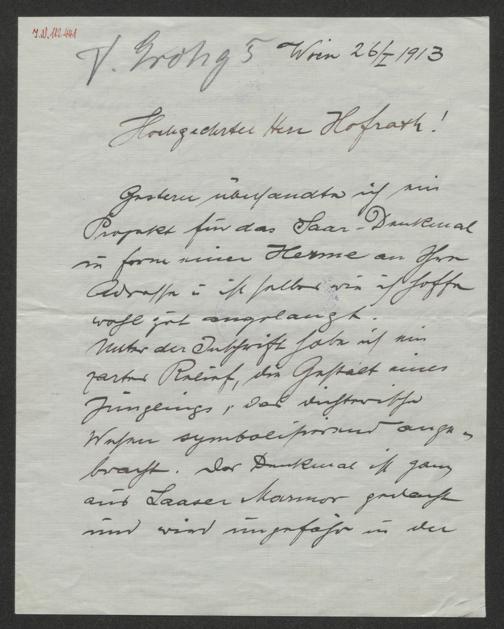 I.N. 182.441
V. Grohg 5 Wien 26/I 1913
Hochgeehrter Herr Hofrath!
Gestern übersandte ich ein
Projekt für das Saar-Denkmal
in form einer Herme an Ihre
Adresse u ist selbes wie ich hoffe
wohl gut angelangt.
Unter der Inschrift habe ich ein
zartes Relief, die Gestalt eines
Jünglings, das dichterische
Wesen symbolisirend ange-
bracht. Das Denkmal ist ganz
aus Laaser Marmor gedacht
und wird ungefähr in der